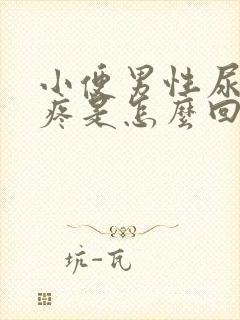 小便男性尿
疼是怎麼回
坑-瓦